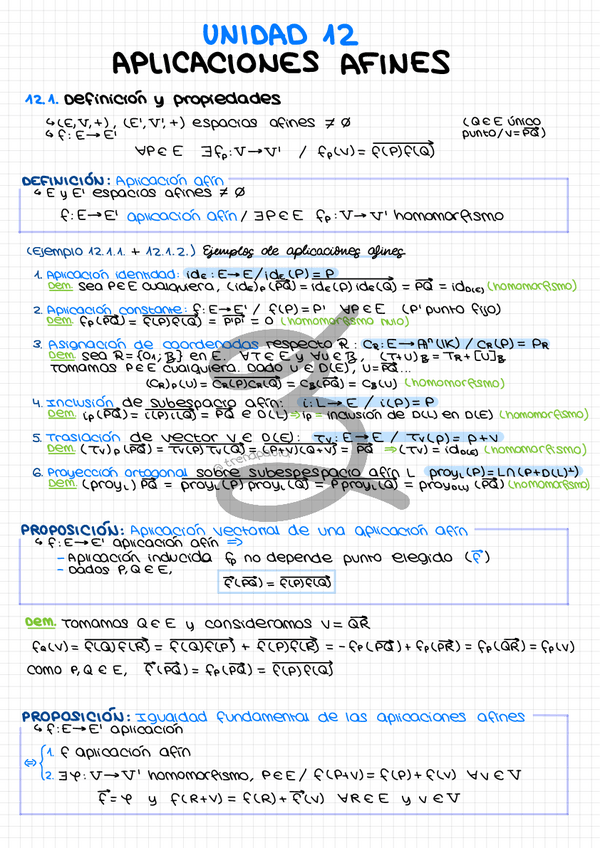 UNIDAD 12
APLICACIONES AFINES
12.1. Definición y propiedades
↳ (E,V,+), (E',V',+) espacios afines ≠ ∅ (Q∈E único
↳ f: E→E' punto/v=PQ⃗)
∀P∈E ∃fₚ: V→V' / fₚ(v) = f(P)f(Q)⃗
DEFINICIÓN: Aplicación afín
↳ E y E' espacios afines ≠ ∅
f: E→E' aplicación afín / ∃P∈E fₚ: V→V' homomorfismo
(Ejemplo 12.1.1. + 12.1.2.) Ejemplos de aplicaciones afines
1. Aplicación identidad: id_E : E→E / id_E(P) = P
Dem. sea P∈E cualquiera, (id_E)ₚ(PQ⃗) = id_E(P) id_E(Q)⃗ = PQ⃗ = id_D(E) (homomorfismo)
2. Aplicación constante: f: E→E' / f(P) = P' ∀P∈E (P' punto fijo)
Dem. fₚ(PQ⃗) = f(P)f(Q)⃗ = P'P'⃗ = 0 (homomorfismo nulo)
3. Asignación de coordenadas respecto R: C_R: E→Aⁿ(IK) / C_R(P) = P_R
Dem. sea R = {O₁, B} en E. ∀T∈E y ∀U∈B, (T+U)_B = T_R + [U]_B
Tomamos P∈E cualquiera. Dado U∈D(E), U = PQ⃗...
(C_R)ₚ(U) = C_R(P)C_R(Q)⃗ = C_B(PQ⃗) = C_B(U) (homomorfismo)
4. Inclusión de subespacio afín: i: L→E / i(P) = P
Dem. iₚ(PQ⃗) = i(P)i(Q)⃗ = PQ⃗ ∈ D(L) ⇒ iₚ = inclusión de D(L) en D(E) (homomorfismo)
5. Traslación de vector v∈D(E): τᵥ: E→E / τᵥ(P) = P+v
Dem. (τᵥ)ₚ(PQ⃗) = τᵥ(P) τᵥ(Q)⃗ = (P+v)(Q+v)⃗ = PQ⃗ ⇒ (τᵥ) = id_D(E) (homomorfismo)
6. Proyección ortogonal sobre subespespacio afín L proy_L(P) = L∩(P+D(L)^⊥)
Dem. (proy_L) PQ⃗ = proy_L(P) proy_L(Q)⃗ = P'Q'⃗ = proy_D(L) (PQ⃗) (homomorfismo)
@trenapacia
PROPOSICIÓN: Aplicación vectorial de una aplicación afín
↳ f: E→E' aplicación afín ⇒
- Aplicación inducida fₚ no depende punto elegido (f⃗)
- Dados P,Q∈E,
f⃗(PQ⃗) = f(P)f(Q)⃗
Dem. Tomamos Q∈E y consideramos v = QR⃗
f_Q(v) = f(Q)f(R)⃗ = f(Q)f(P)⃗ + f(P)f(R)⃗ = -fₚ(PQ⃗) + fₚ(PR⃗) = fₚ(QR⃗) = fₚ(v)
Como P,Q∈E, f⃗(PQ⃗) = fₚ(PQ⃗) = f(P)f(Q)⃗
PROPOSICIÓN: Igualdad fundamental de las aplicaciones afines
↳ f: E→E' aplicación
⇔ { 1. f aplicación afín
2. ∃φ: V→V' homomorfismo, P∈E / f(P+v) = f(P) + f(v) ∀v∈V
f⃗ = φ y f(R+v) = f(R) + f⃗(v) ∀R∈E y v∈V